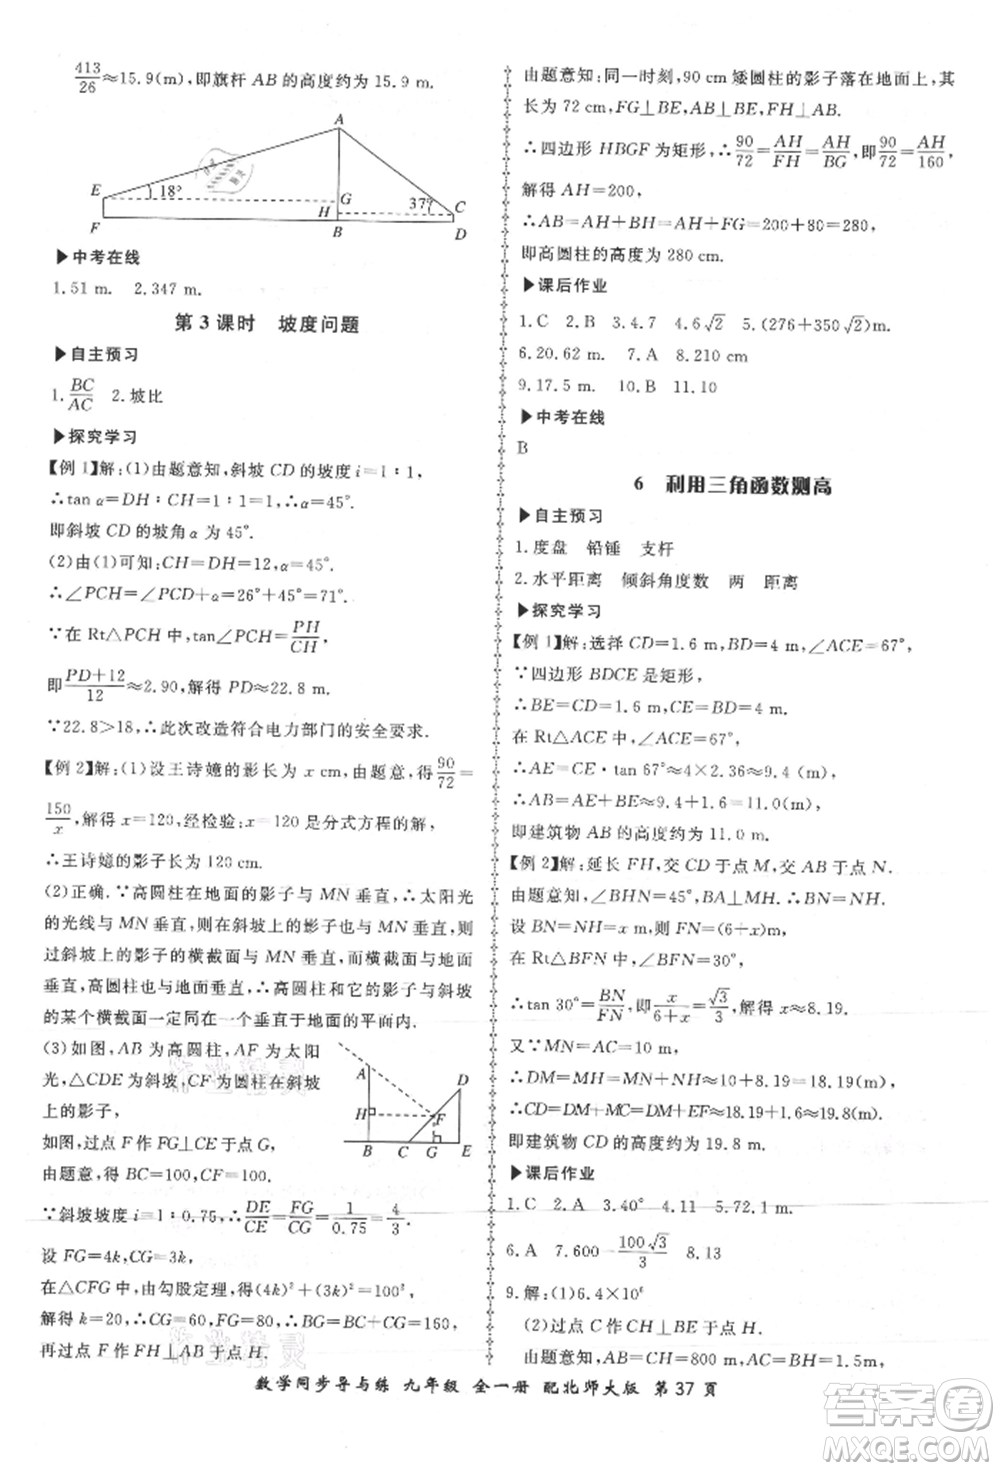 413/26≈15.9(m),即旗杆 AB 的高度约为 15.9 m.
A
E
18°
G
37°
C
F
H
B
D
▶中考在线
1.51 m. 2.347 m.
第 3 课时 坡度问题
▶自主预习
1.BC/AC 2.坡比
▶探究学习
【例 1】解:(1)由题意知,斜坡 CD 的坡度 i=1∶1,
∴tan α=DH∶CH=1∶1=1,α=45°.
即斜坡 CD 的坡角 α 为 45°.
(2)由(1)可知:CH=DH=12,α=45°.
∴∠PCH=∠PCD+α=26°+45°=71°.
∵在 Rt△PCH 中,tan∠PCH=PH/CH,
即(PD+12)/12≈2.90,解得 PD≈22.8 m.
∵22.8>18,∴此次改造符合电力部门的安全要求.
【例 2】解:(1)设王诗嬑的影长为 x cm,由题意,得90/72=
150/x,解得 x=120,经检验:x=120 是分式方程的解.
∴王诗嬑的影子长为 120 cm.
(2)正确.∵高圆柱在地面的影子与 MN 垂直,∴太阳光
的光线与 MN 垂直,则在斜坡上的影子也与 MN 垂直,则
过斜坡上的影子的横截面与 MN 垂直,而横截面与地面
垂直,高圆柱也与地面垂直,∴高圆柱和它的影子与斜坡
的某个横截面一定同在一个垂直于地面的平面内.
(3)如图,AB 为高圆柱,AF 为太阳
光,△CDE 为斜坡,CF 为圆柱在斜坡
上的影子,
如图,过点 F 作 FG⊥CE 于点 G,
由题意,得 BC=100,CF=100,
A
D
H
F
B
C
G
E
∵斜坡坡度 i=1∶0.75,∴DE/CE=FG/CG=1/0.75=4/3,
设 FG=4k,CG=3k,
在△CFG 中,由勾股定理,得(4k)²+(3k)²=100²,
解得 k=20,∴CG=60,FG=80,∴BG=BC+CG=160,
再过点 F 作 FH⊥AB 于点 H,
由题意知:同一时刻,90 cm 矮圆柱的影子落在地面上,其
长为 72 cm,FG⊥BE,AB⊥BE,FH⊥AB.
∴四边形 HBGF 为矩形,∴90/72=AH/FH=AH/BG,即90/72=AH/160,
解得 AH=200,
∴AB=AH+BH=AH+FG=200+80=280,
即高圆柱的高度为 280 cm.
▶课后作业
1.C 2.B 3.4.7 4.6√2 5.(276+350√2)m.
6.20.62 m. 7.A 8.210 cm
9.17.5 m. 10.B 11.10
▶中考在线
B
6 利用三角函数测高
▶自主预习
1.度盘 铅锤 支杆
2.水平距离 倾斜角度数 两 距离
▶探究学习
【例 1】解:选择 CD=1.6 m,BD=4 m,∠ACE=67°,
∵四边形 BDCE 是矩形,
∴BE=CD=1.6 m,CE=BD=4 m.
在 Rt△ACE 中,∠ACE=67°,
∴AE=CE·tan 67°≈4×2.36≈9.4 (m),
∴AB=AE+BE≈9.4+1.6=11.0(m).
即建筑物 AB 的高度约为 11.0 m.
【例 2】解:延长 FH,交 CD 于点 M,交 AB 于点 N.
由题意知,∠BHN=45°,BA⊥MH,则 BN=NH,
设 BN=NH=x m,则 FN=(6+x)m.
在 Rt△BFN 中,∠BFN=30°,
∴tan 30°=BN/FN,即x/(6+x)=√3/3,解得 x≈8.19.
又∵DN=AC=10 m,
∴DM=MH=MN+NH≈10+8.19=18.19(m),
∴CD=DM+MC=DM+EF≈18.19+1.6≈19.8(m).
即建筑物 CD 的高度约为 19.8 m.
▶课后作业
1.C 2.A 3.40° 4.11 5.72.1 m.
6.A 7.600−100√3/3 8.13
9.解:(1)6.4×10⁶
(2)过点 C 作 CH⊥BE 于点 H.
由题意知,AB=CH=800 m,AC=BH,
数学同步导与练 九年级 全一册 配北师大版 第 37 页
答案圈
MXQE.COM